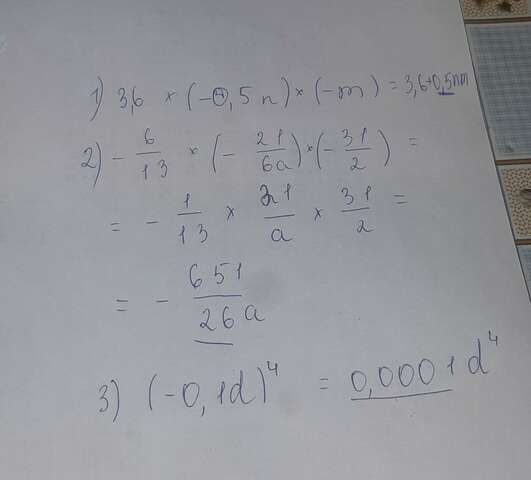 1) 3,6 × (-0,5n) × (-m) = 3,6+0,5nm
2) - 6/13 × (- 21/6a) × (- 31/2) =
= - 1/13 × 21/a × 31/2 =
= - 651/26a
3) (-0,1d)⁴ = 0,0001d⁴